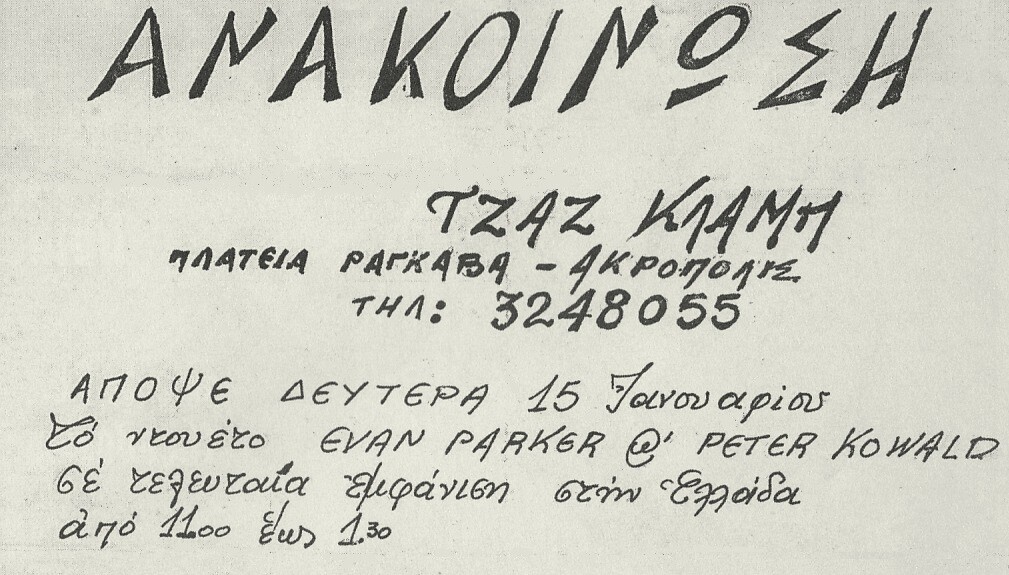 ΑΝΑΚΟΙΝΩΣΗ
ΤΖΑΖ ΚΛΑΜΠ
ΠΛΑΤΕΙΑ ΡΑΓΚΑΒΑ – ΑΚΡΟΠΟΛΙΣ
ΤΗΛ: 3248055
ΑΠΟΨΕ ΔΕΥΤΕΡΑ 15 Ἰανουαρίου
τό ντουέτο EVAN PARKER @ PETER KOWALD
σέ τελευταία ἐμφάνιση στήν Ἑλλάδα
ἀπό 11.00 ἕως 1.30